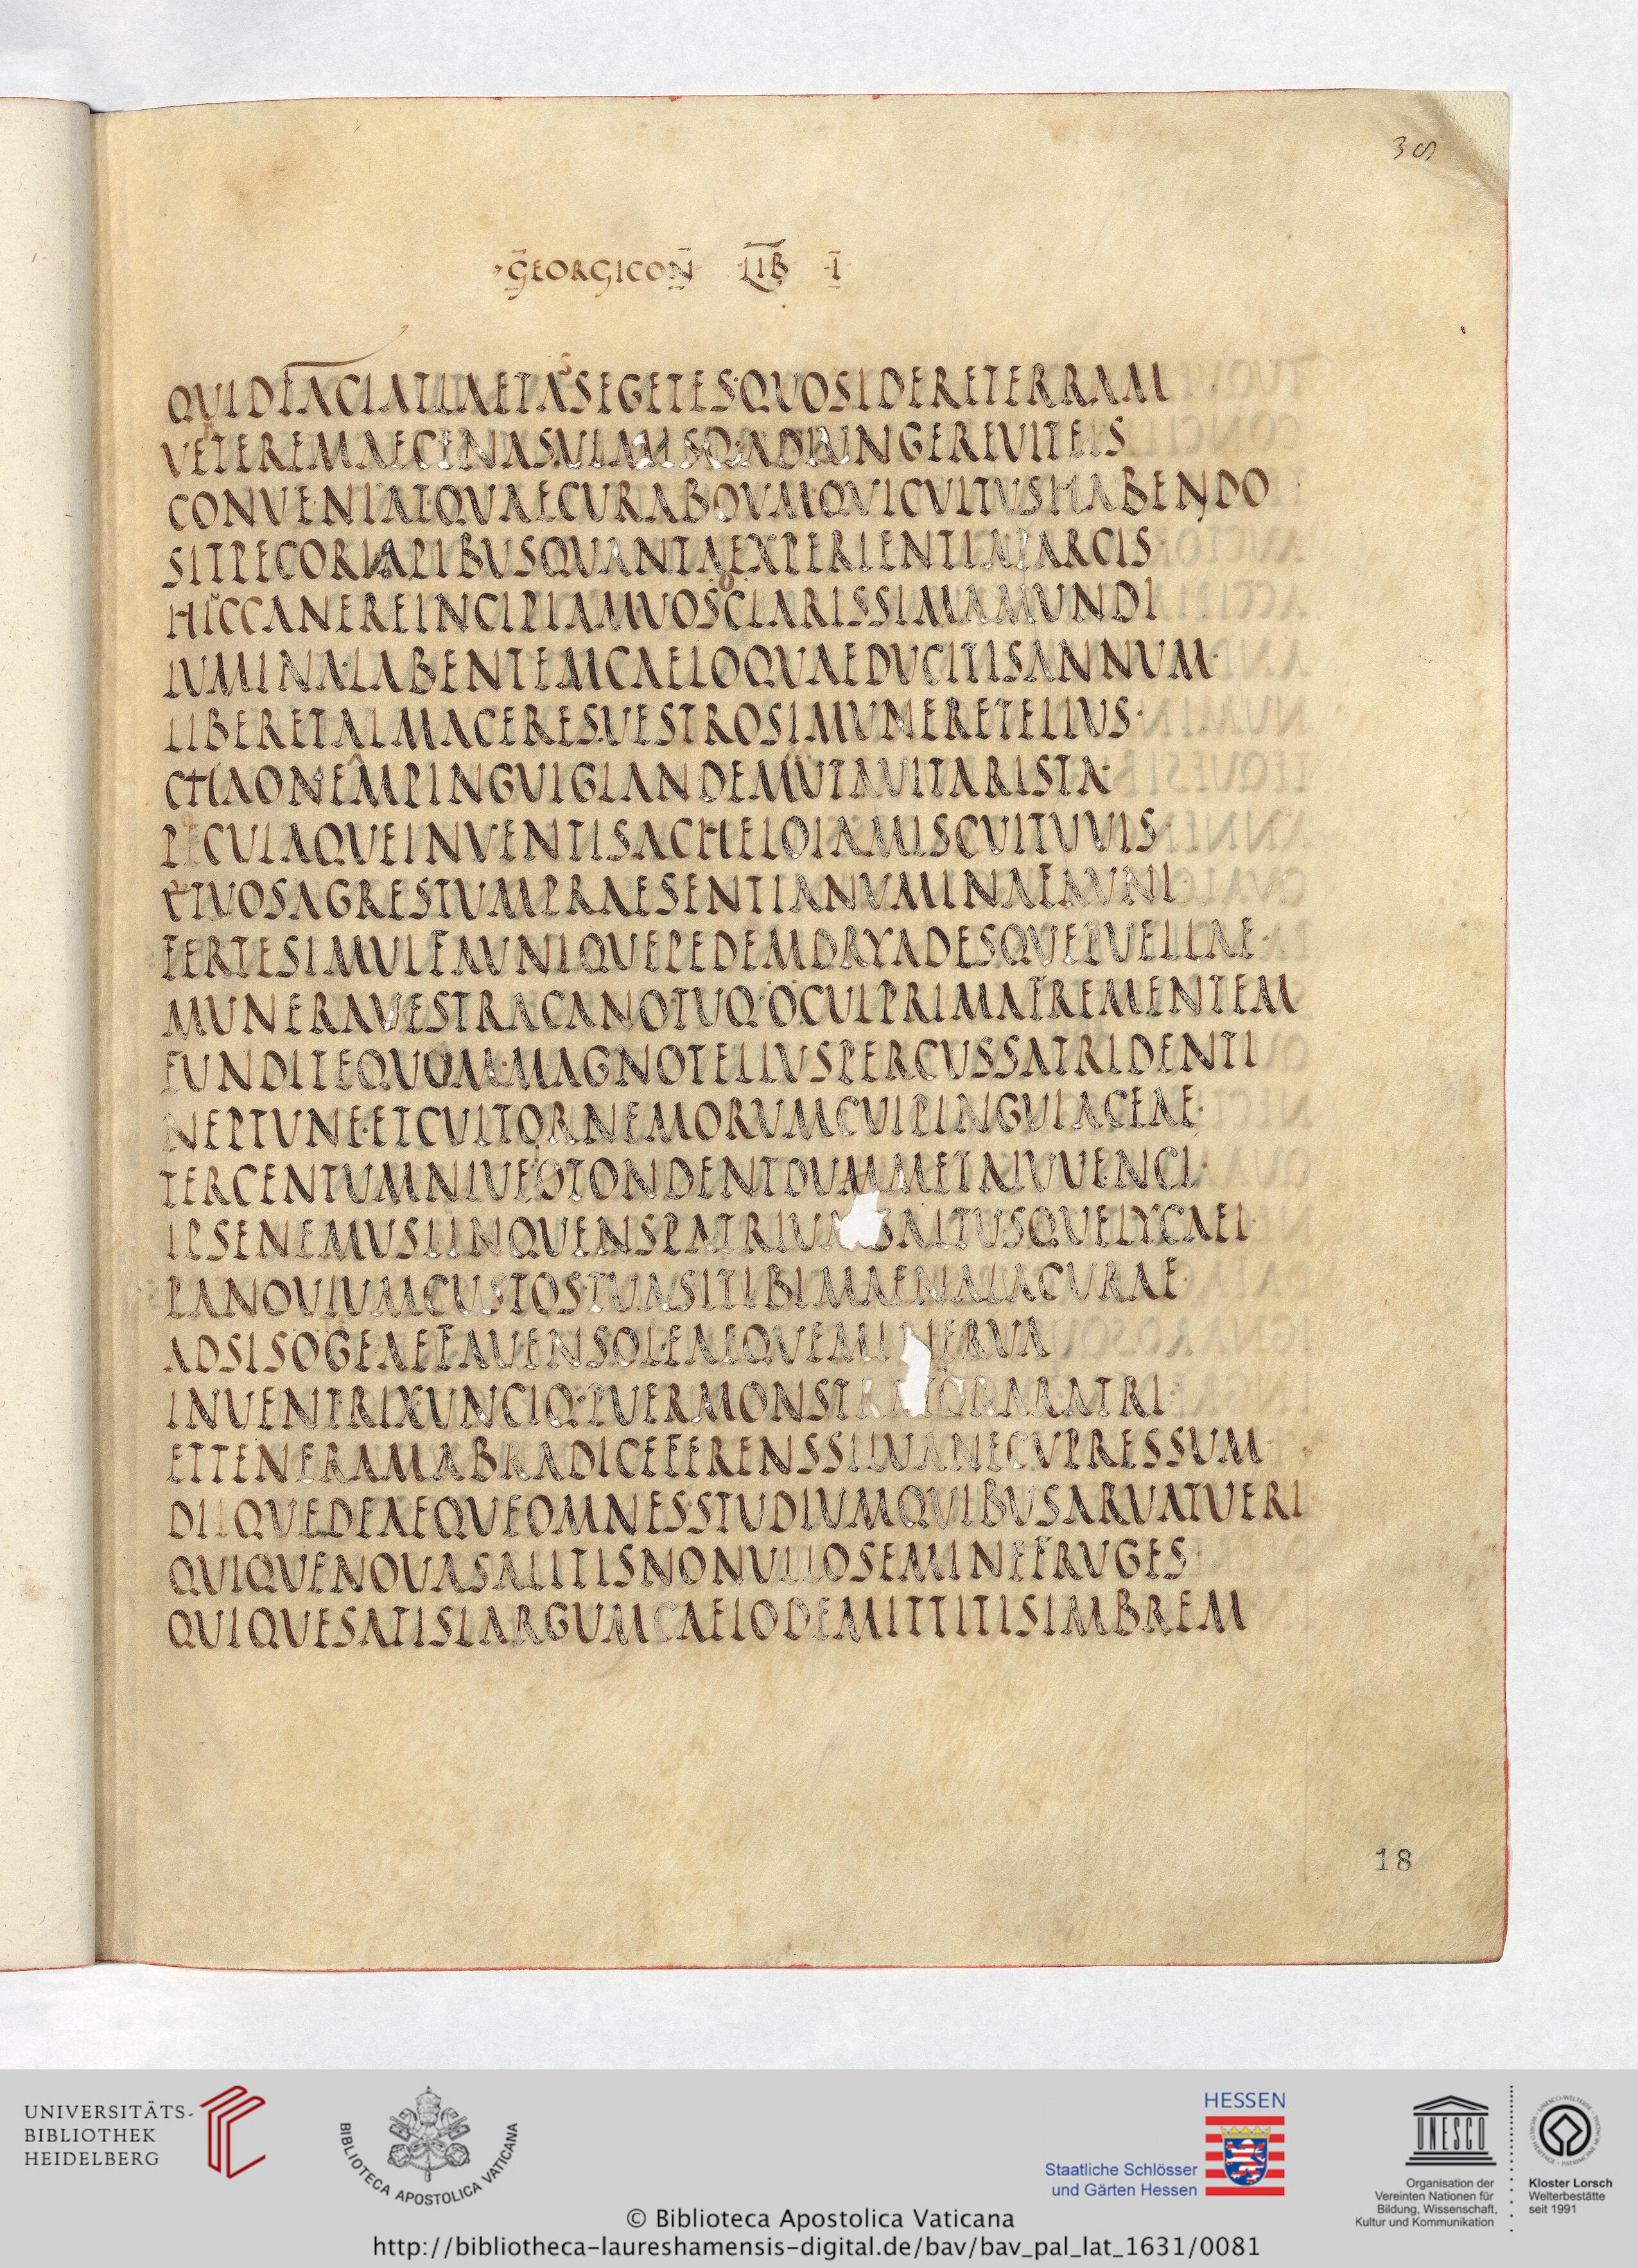 39
GEORGICON LIB I
QUIDFACIATLAETASSEGETES·QUOSIDERETERRAM
VETEREMAECENAS·ULMISQ·ADIUNGEREVITEIS
CONVENIATQUAECURABOVMQVICVLTUSHABENDO
SITPECORIAPIBUSQUANTAEXPERIENTIAPARCIS
HICCANEREINCIPIAMUOSOCLARISSIMAMUNDI
LUMINA·LABENTEMCAELOQUAEDUCITISANNUM·
LIBERETALMACERES·UESTROSIMUNERETELLUS·
CHAONEAMPINGUIGLANDEMUTAUITARISTA·
POCULAQUEINVENTISACHELOIAMISCUITUVIS
ETVOSAGRESTUMPRAESENTIANUMINAFAUNI·
FERTESIMULFAUNIQUEPEDEMDRYADESQUEPUELLAE·
MUNERAVESTRACANO·TUQ·OCUIPRIMAFREMENTEM
FUNDITEQUOM·MAGNOTELLUSPERCUSSATRIDENTI
NEPTUNE·ETCULTORNEMORUMCUIPINGUIACEAE·
TERCENTUMNIUEOTONDENTDUMMETAIUUENCI·
IPSENEMUSLINQUENSPATRIUMSALTUSQUELYCAEI·
PANOUIUMCUSTOSTUASITIBIMAENALACURAE·
ADSISOGEAEFAUENSOLEAEQUEMINERUA
INUENTRIXUNCIQ·PUERMONSTRATORARATRI·
ETTENERAMABRADICEFERENSSILUANECUPRESSUM
DIIQUEDEAEQUEOMNESSTUDIUMQUIBUSARUATUERI
QUIQUENOUASALITISNONULLOSEMINEFRUGES
QUIQUESATISLARGUMCAELODEMITTITISIMBREM
18
UNIVERSITÄTS-
BIBLIOTHEK
HEIDELBERG
BIBLIOTECA APOSTOLICA VATICANA
HESSEN
Staatliche Schlösser
und Gärten Hessen
UNESCO
Organisation der
Vereinten Nationen für
Bildung, Wissenschaft,
Kultur und Kommunikation
Kloster Lorsch
Welterbestätte
seit 1991
© Biblioteca Apostolica Vaticana
http://bibliotheca-laureshamensis-digital.de/bav/bav_pal_lat_1631/0081